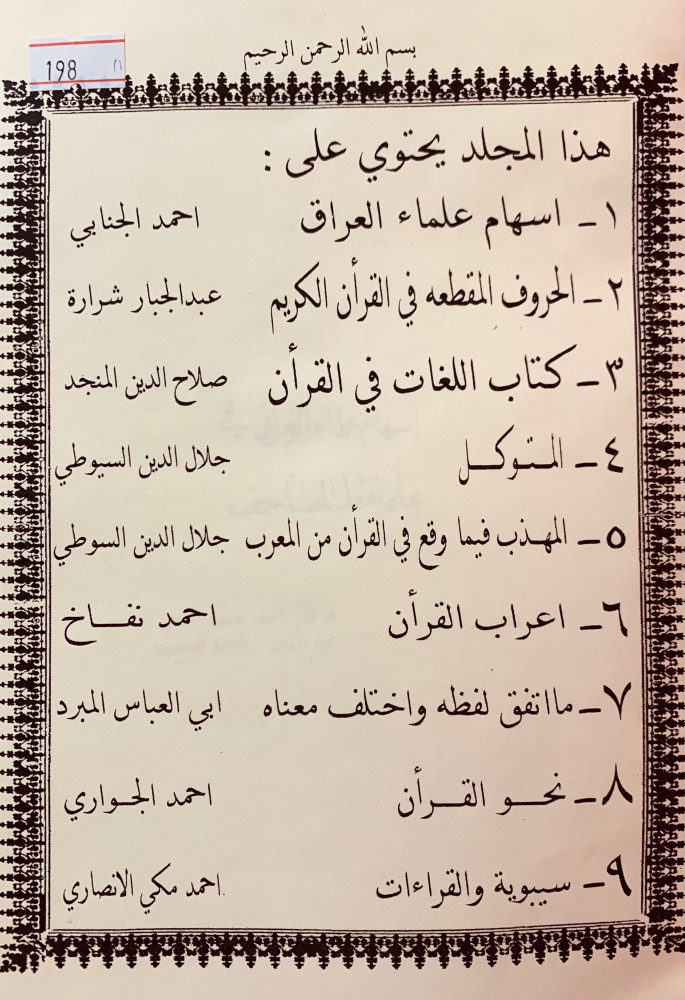 198 (١)
بسم الله الرحمن الرحيم
هذا المجلد يحتوي على :
١ـ اسهام علماء العراق احمد الجنابي
٢ـ الحروف المقطعه في القرأن الكريم عبدالجبار شرارة
٣ـ كتاب اللغات في القرأن صلاح الدين المنجد
٤ـ المتوكل جلال الدين السيوطي
٥ـ المهذب فيما وقع في القرأن من المعرب جلال الدين السوطي
٦ـ اعراب القرأن احمد نفاخ
٧ـ مااتفق لفظه واختلف معناه ابي العباس المبرد
٨ـ نحو القرأن احمد الجواري
٩ـ سيبوية والقراءات احمد مكي الانصاري